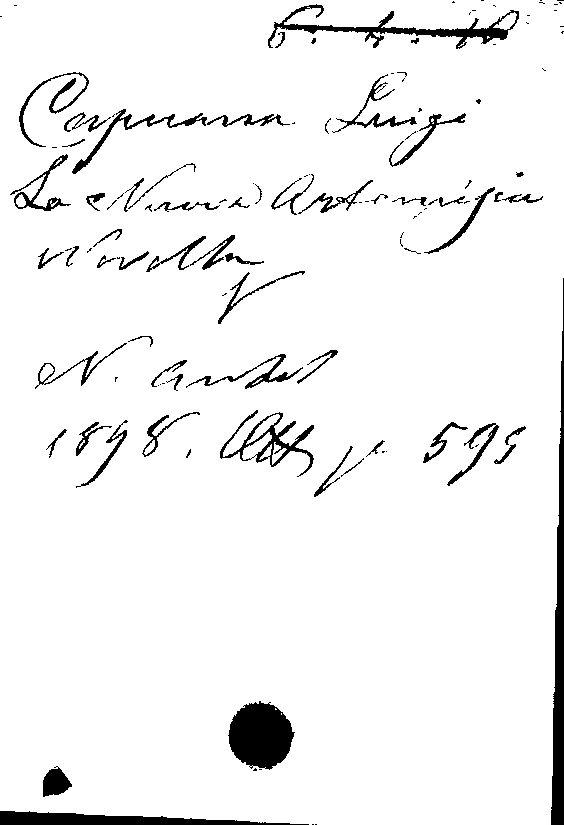 6. 4. 16
Capuana Luigi
La Nuova Artemisia
Novella
N. Antol
1898. Ott p. 595